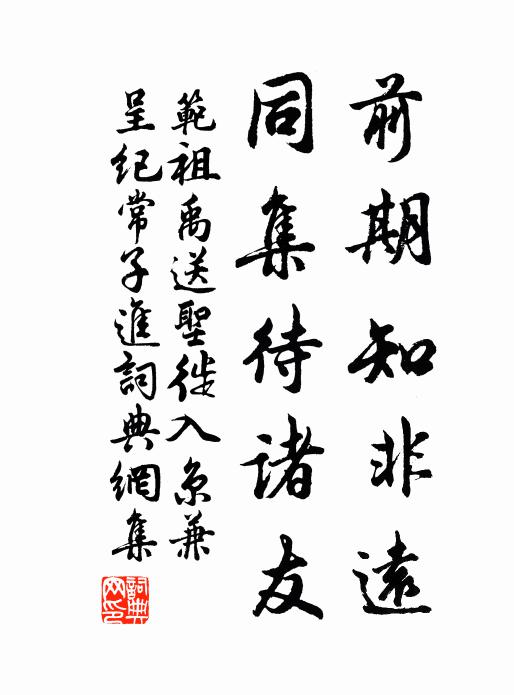 前期知非遠
同集待諸友
範祖禹送聖徙入京兼
呈纪常子進詞典網集
詞典
网印